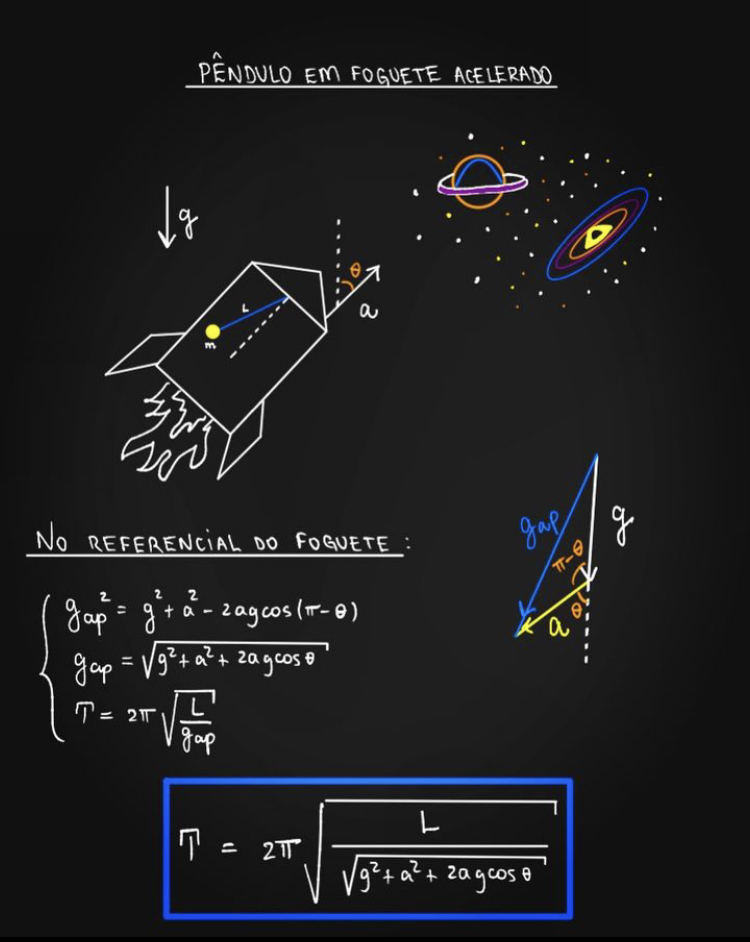 PÊNDULO EM FOGUETE ACELERADO
g
θ
a
L
m
gap
g
π-θ
θ
a
NO REFERENCIAL DO FOGUETE:
gap² = g² + a² - 2agcos(π-θ)
gap = √g²+a²+2agcosθ
T = 2π √L/gap
T = 2π √L/√g²+a²+2agcosθ